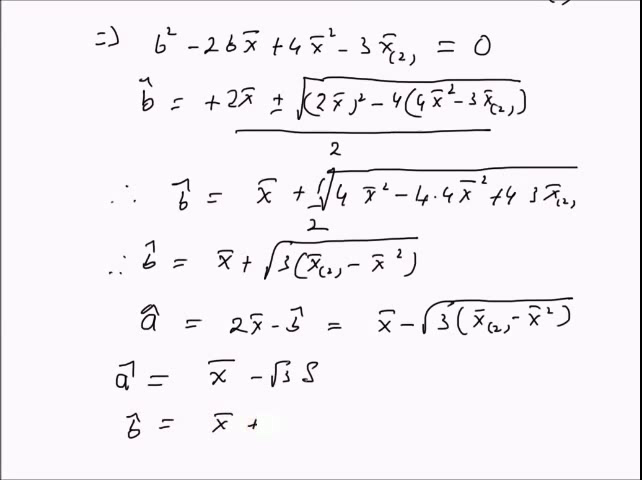 ⇒ b² - 2bx̄ + 4x̄² - 3x̄₍₂₎ = 0
b̂ = +2x̄ ± √((2x̄)² - 4(4x̄² - 3x̄₍₂₎)) / 2
∴ b̂ = x̄ + 1/2 √(4x̄² - 4·4x̄² + 4 3x̄₍₂₎)
∴ b̂ = x̄ + √(3(x̄₍₂₎ - x̄²))
â = 2x̄ - b̂ = x̄ - √(3(x̄₍₂₎ - x̄²))
â = x̄ - √3 S
b̂ = x̄ +